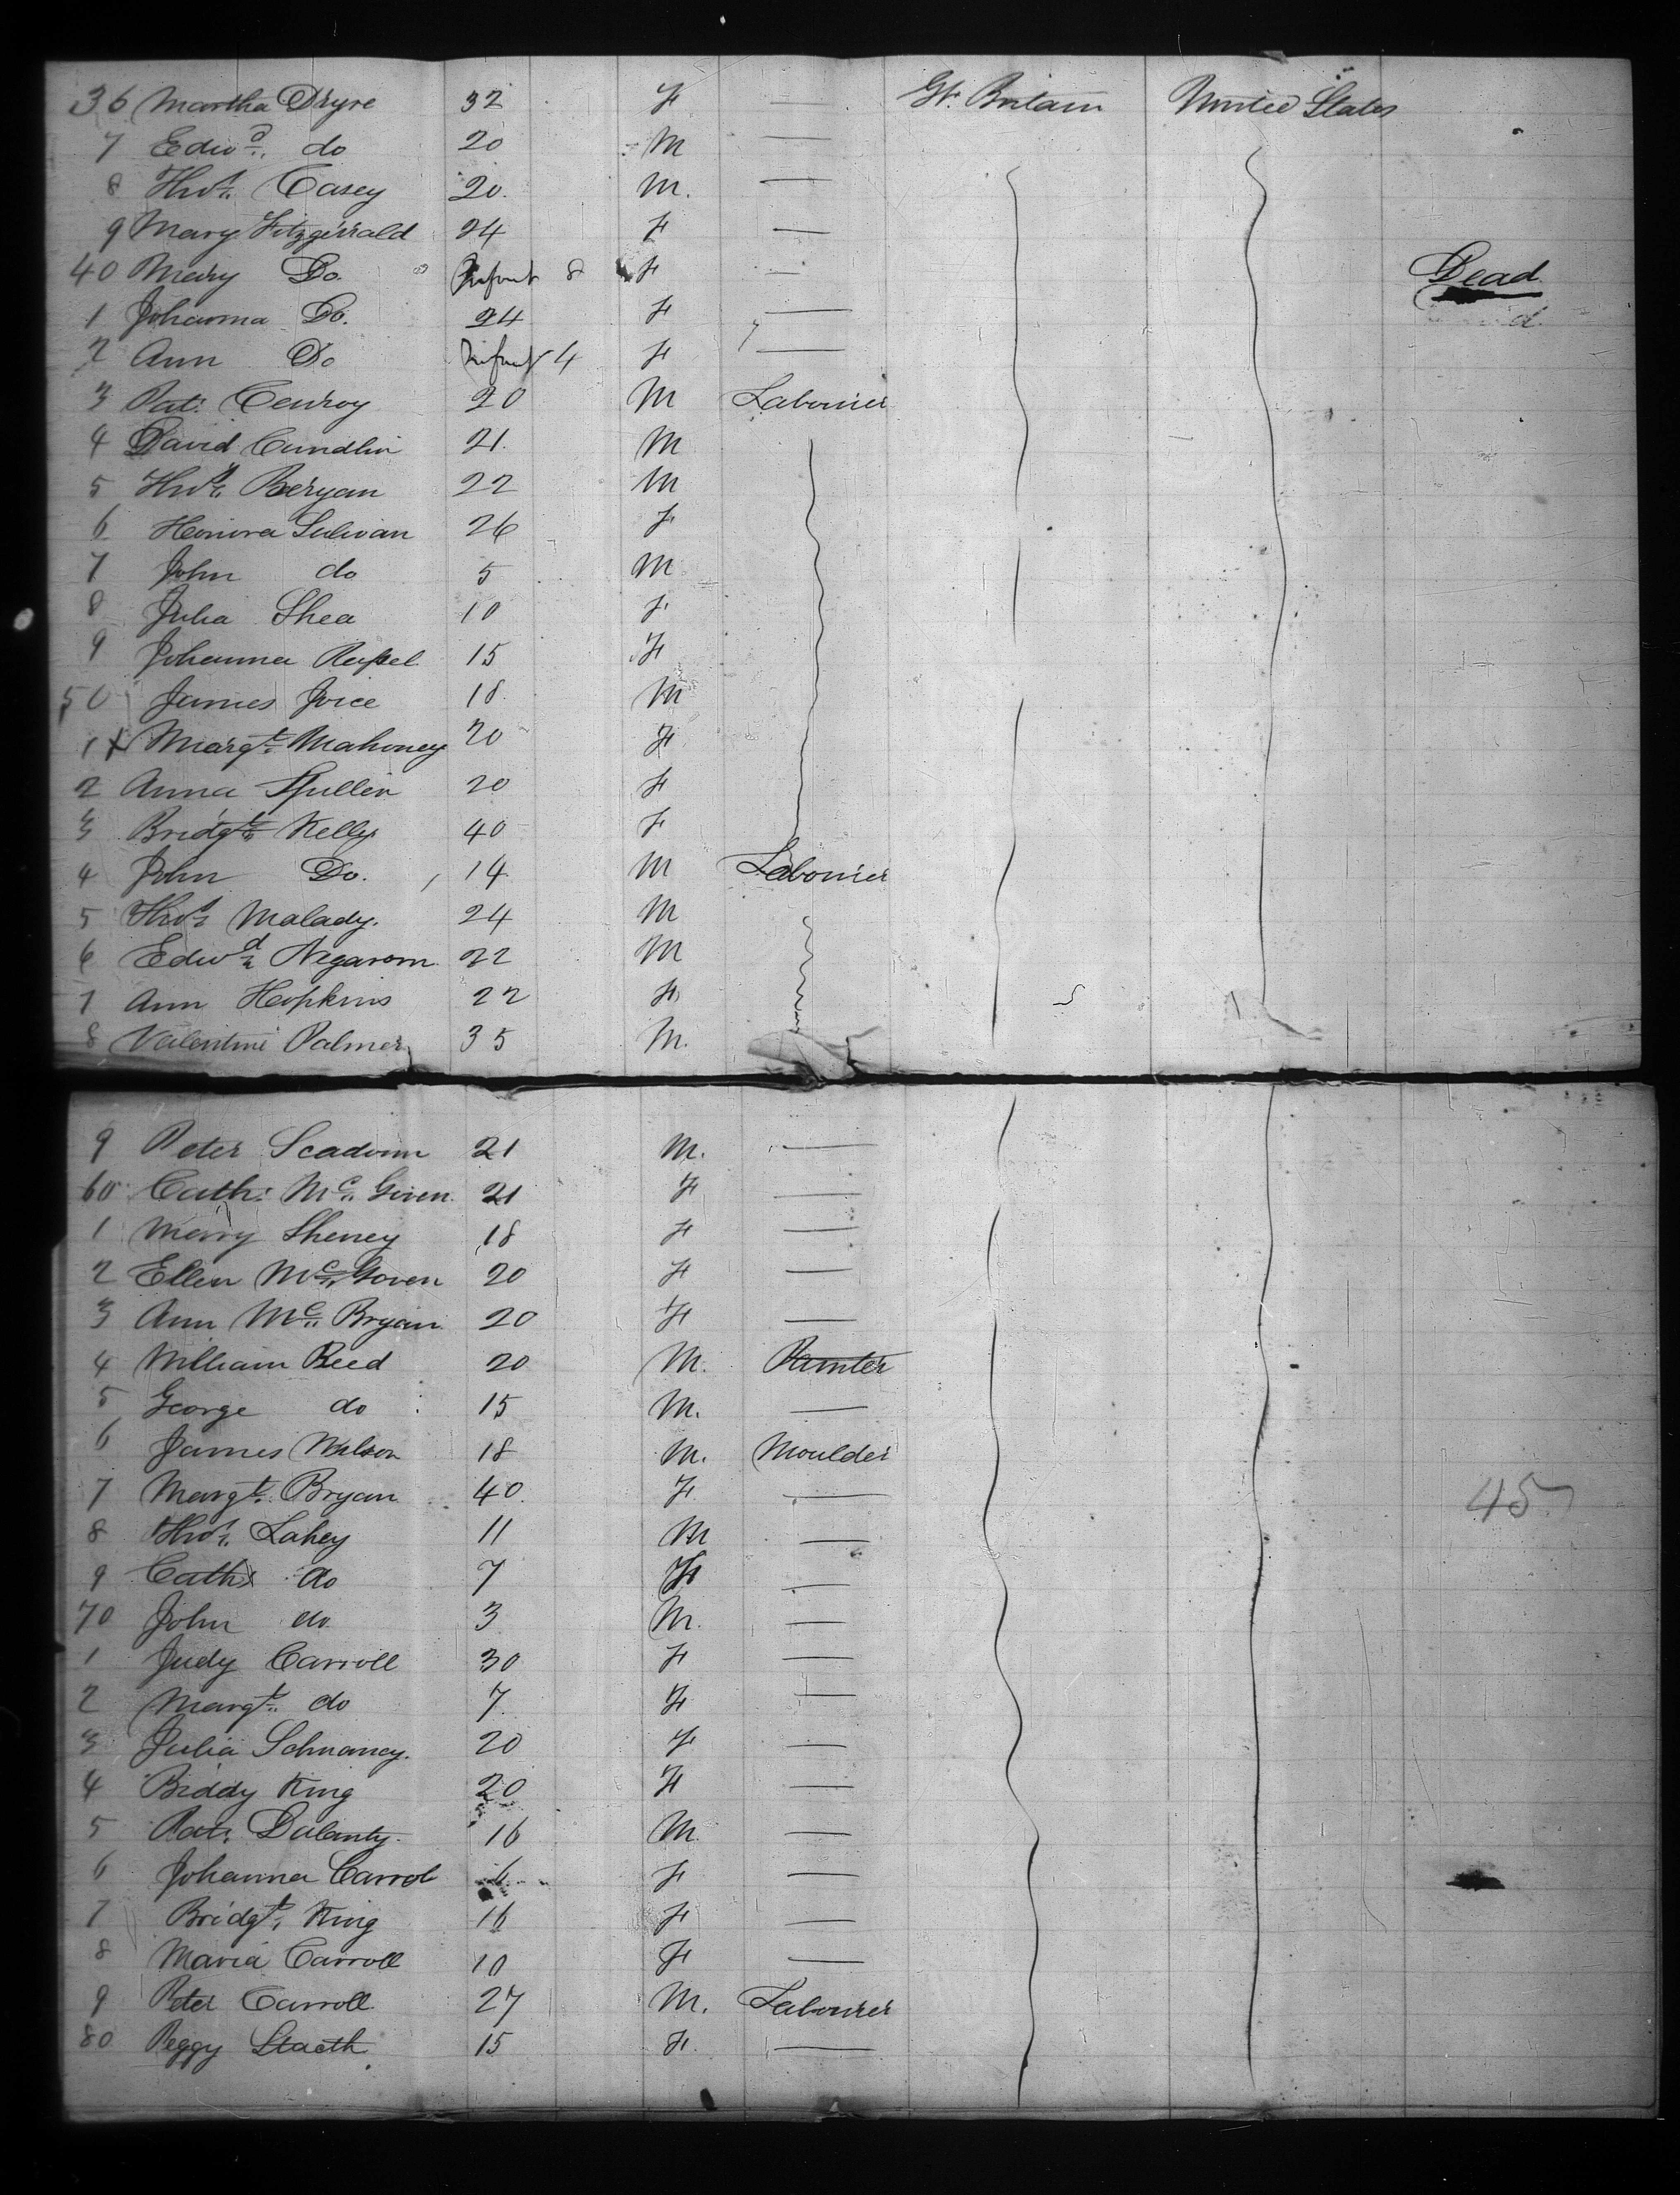 36 Martha Dryre 32 F — Gt. Britain United States
7 Edwd. do 20 M —
8 Thos. Casey 20. M. —
9 Mary Fitzgerrald 24 F —
40 Mary Do. Infant 8 F — Dead
1 Johanna Do. 24 F —
2 Ann Do Infant 4 F —
3 Pat. Conroy 20 M Labourer
4 David Cundlin 21. M
5 Thos. Beryan 22 M
6 Honora Sulivan 26 F
7 John do 5 M
8 Julia Shea 10 F
9 Johanna Russel 15 F
50 James Joice 18. M
1 x Margt. Mahoney 20 F
2 Anna Spullen 20 F
3 Bridgt. Kelly 40 F
4 John Do. 14 M Labourer
5 Thos. Malady. 24 M
6 Edwd. 22 M
7 Ann Hopkins 22 F
8 Valentine Palmer 35 M.
9 Peter Scadonn 21 M. —
60 Cath. Mc. Given 21 F —
1 Mary Sheney 18 F —
2 Ellen Mc. Goven 20 F —
3 Ann Mc. Bryan 20 F —
4 William Reed 20 M. Painter
5 George do 15 M. —
6 James Wilson 18 M. Moulder
7 Margt. Bryan 40. F — 45
8 Thos. Lahey 11 M —
9 Cath. do 7 F —
70 John do 3 M. —
1 Judy Carroll 30 F —
2 Margt. do 7. F —
3 Julia 20 F —
4 Biddy King 20 F —
5 Pat. Dulanty. 16 M. —
6 Johanna Carrol 6 F —
7 Bridgt. King 16 F —
8 Maria Carroll 10 F —
9 Peter Carroll 27 M. Labourer
80 Peggy 15 F. —